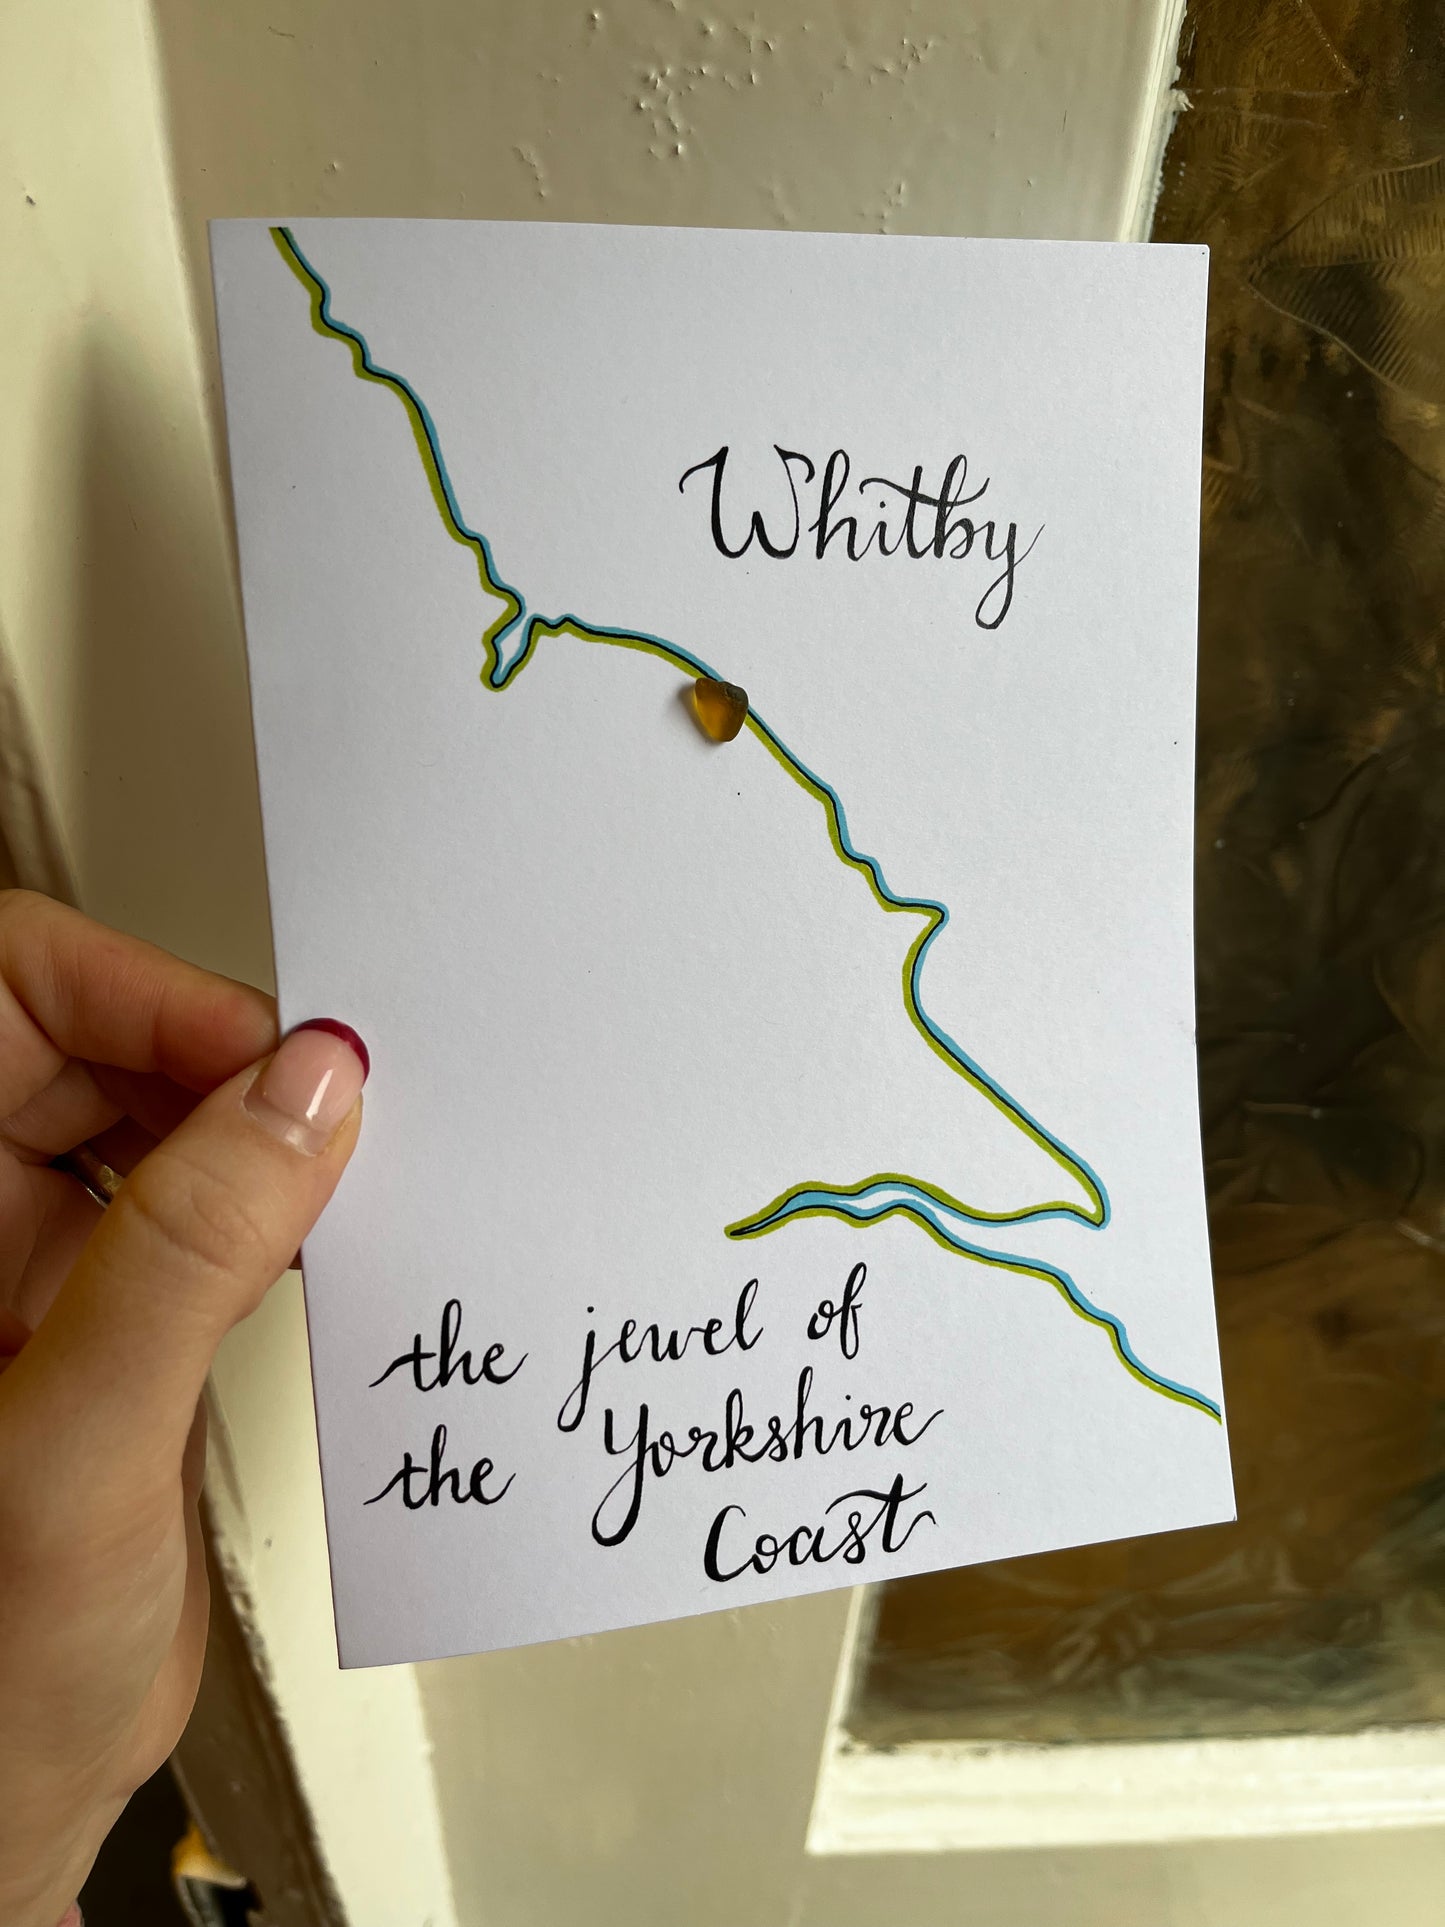 Whitby
the jewel of
the Yorkshire
Coast